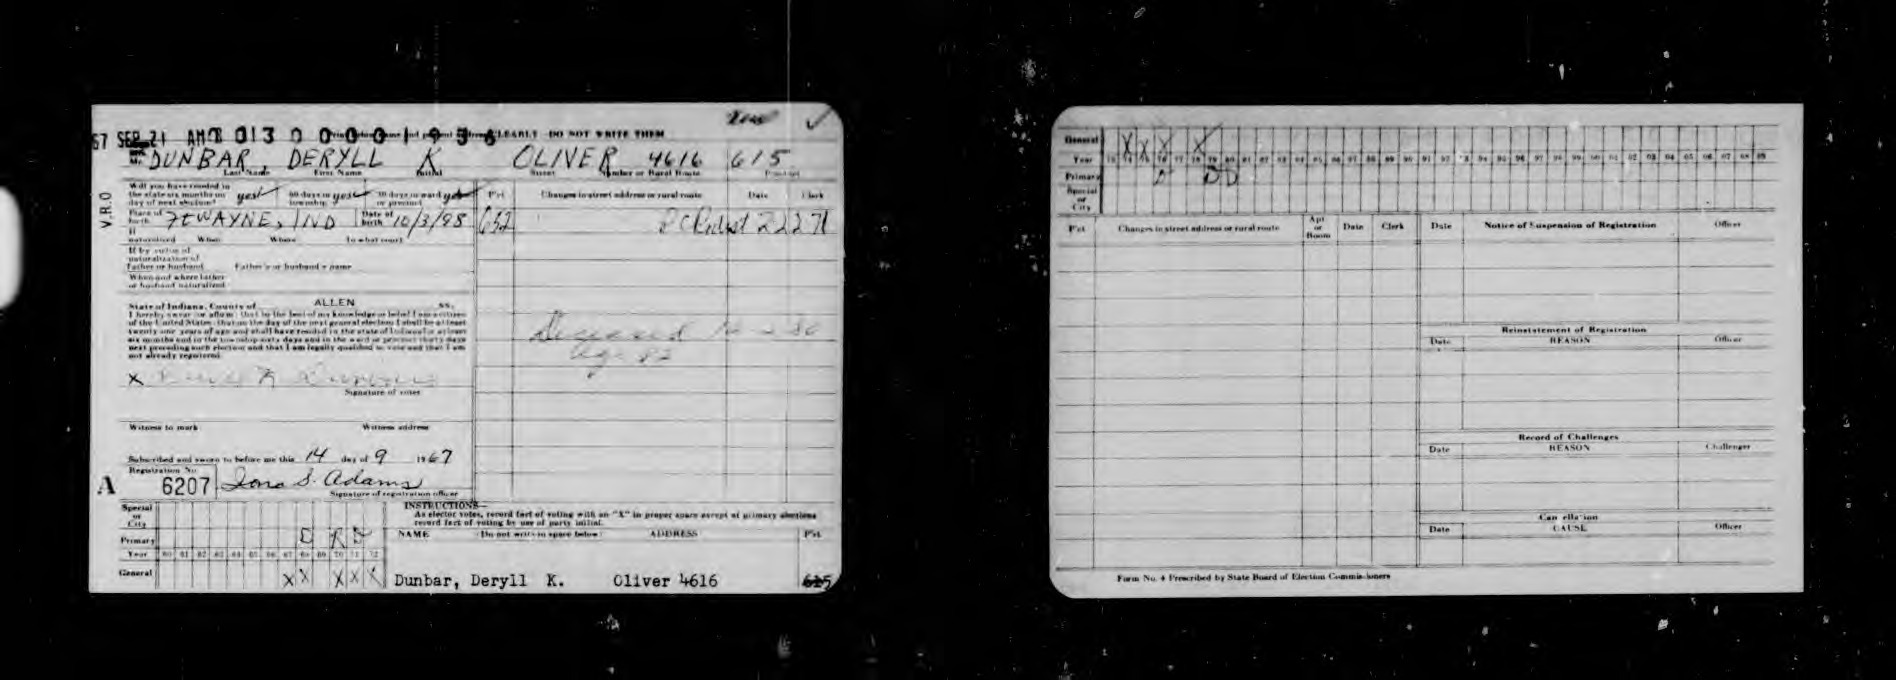 New ✓
67 SEP 21 AM 8 013 0 0 0 0 1 9 5 6 CLEARLY DO NOT WRITE THEM
Mr. DUNBAR, DERYLL K OLIVER 4616 615
Last Name First Name Initial Street Number or Rural Route Precinct
Will you have resided in
the state six months on yes 60 days in yes 30 days in ward yes
day of next election? township, or precinct
Pct Changes in street address or rural route Date Clerk
Place of birth FT WAYNE, IND Date of birth 10/3/98 652 2 22 71
If naturalized When Where In what court
If by virtue of
naturalization of
Father or husband Father's or husband's name
When and where father
or husband naturalized
State of Indiana, County of ALLEN ss.
I hereby swear (or affirm) that to the best of my knowledge or belief I am a citizen
of the United States; that on the day of the next general election I shall be at least
twenty-one years of age and shall have resided in the state of Indiana for at least
six months and in the township sixty days and in the ward or precinct thirty days
next preceding such election and that I am legally qualified to vote and that I am
not already registered.
Deceased
age 82
X
Signature of voter
Witness to mark Witness address
Subscribed and sworn to before me this 14 day of 9 1967
Registration No.
A 6207 Iona S. Adams
Signature of registration officer
INSTRUCTIONS—
As elector votes, record fact of voting with an "X" in proper space except at primary elections
record fact of voting by use of party initial.
Special
or
City
Primary D R D
NAME (Do not write in space below) ADDRESS Pct.
Year 60 61 62 63 64 65 66 67 68 69 70 71 72
General X X X X X
Dunbar, Deryll K. Oliver 4616 615
V.R.O
General X X X X
Year 73 74 75 76 77 78 79 80 81 82 83 84 85 86 87 88 89 90 91 92 93 94 95 96 97 98 99 00 01 02 03 04 05 06 07 08 09
Primary D D D
Special
or
City
Pct Changes in street address or rural route Apt or Room Date Clerk
Date Notice of Suspension of Registration Officer
Reinstatement of Registration
Date REASON Officer
Record of Challenges
Date REASON Challenger
Cancellation
Date CAUSE Officer
Form No. 4 Prescribed by State Board of Election Commissioners